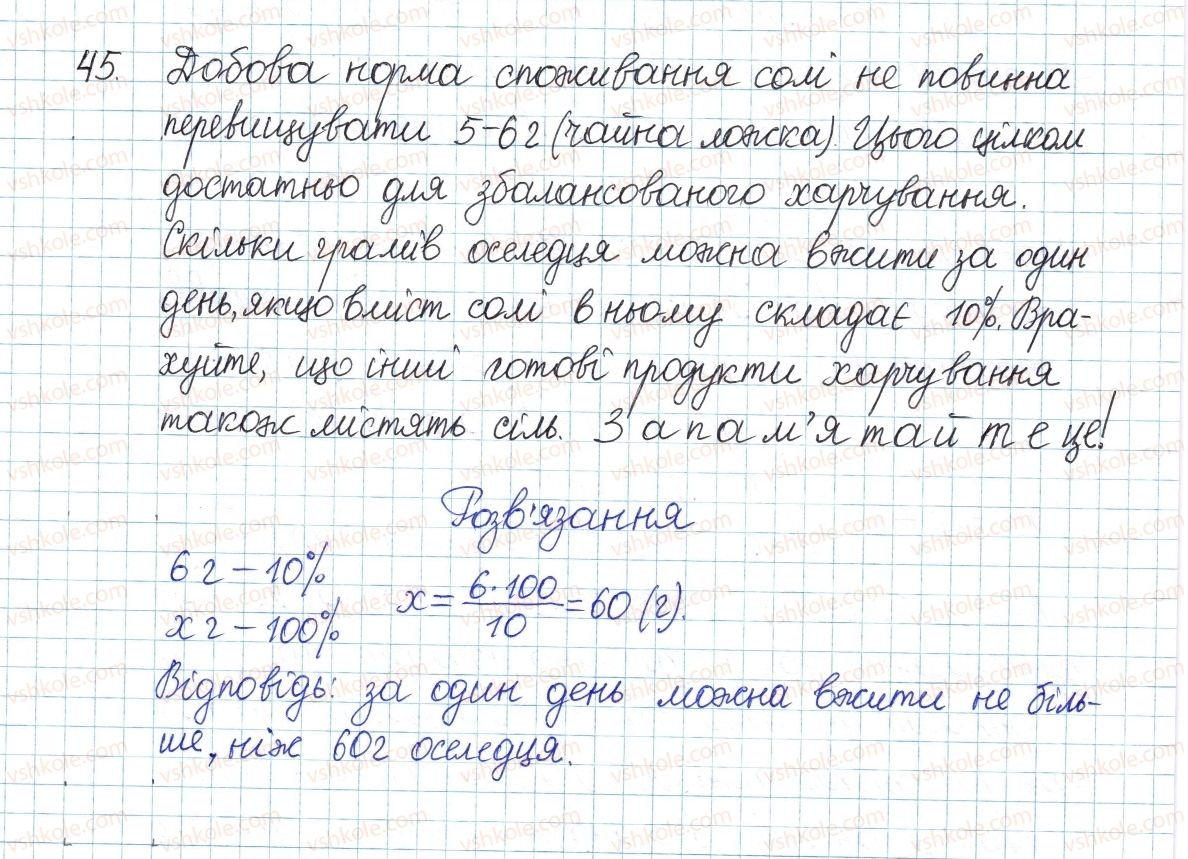 45. Добова норма споживання солі не повинна
перевищувати 5-6 г (чайна ложка). Цього цілком
достатньо для збалансованого харчування.
Скільки грамів оселедця можна вжити за один
день, якщо вміст солі в ньому складає 10%. Вра-
хуйте, що інші готові продукти харчування
також містять сіль. Запам'ятайте це!
Розв'язання
6 г – 10%
х г – 100%
x = 6·100/10 = 60 (г).
Відповідь: за один день можна вжити не біль-
ше, ніж 60 г оселедця.
vshkole.com